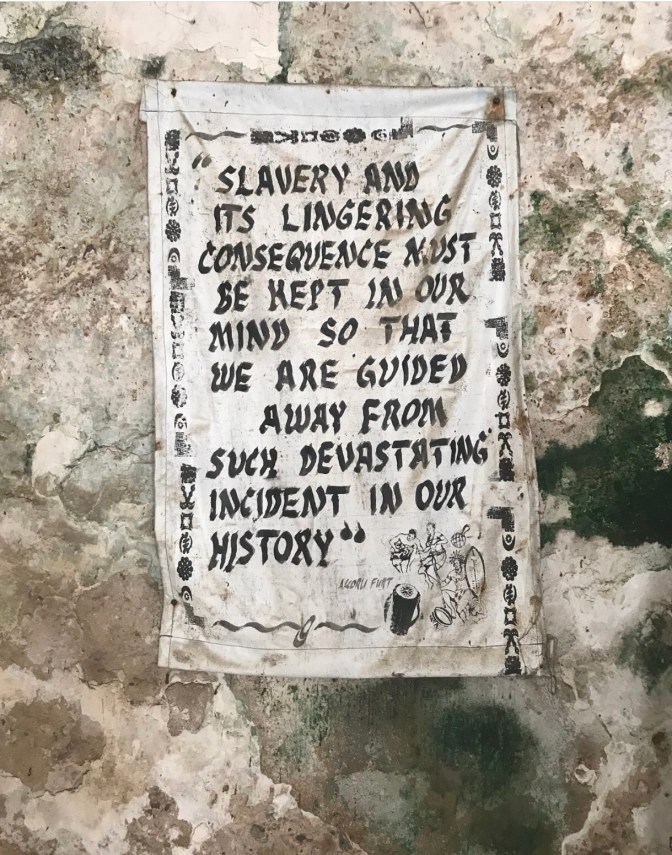 “SLAVERY AND
ITS LINGERING
CONSEQUENCE MUST
BE KEPT IN OUR
MIND SO THAT
WE ARE GUIDED
AWAY FROM
SUCH DEVASTATING
INCIDENT IN OUR
HISTORY“